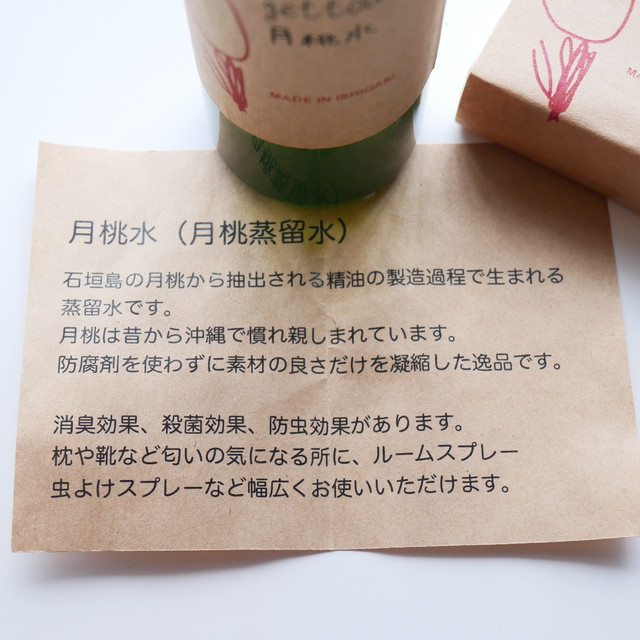 月桃水
MADE IN ISHIGAKI
月桃水（月桃蒸留水）
石垣島の月桃から抽出される精油の製造過程で生まれる
蒸留水です。
月桃は昔から沖縄で慣れ親しまれています。
防腐剤を使わずに素材の良さだけを凝縮した逸品です。
消臭効果、殺菌効果、防虫効果があります。
枕や靴など匂いの気になる所に、ルームスプレー
虫よけスプレーなど幅広くお使いいただけます。